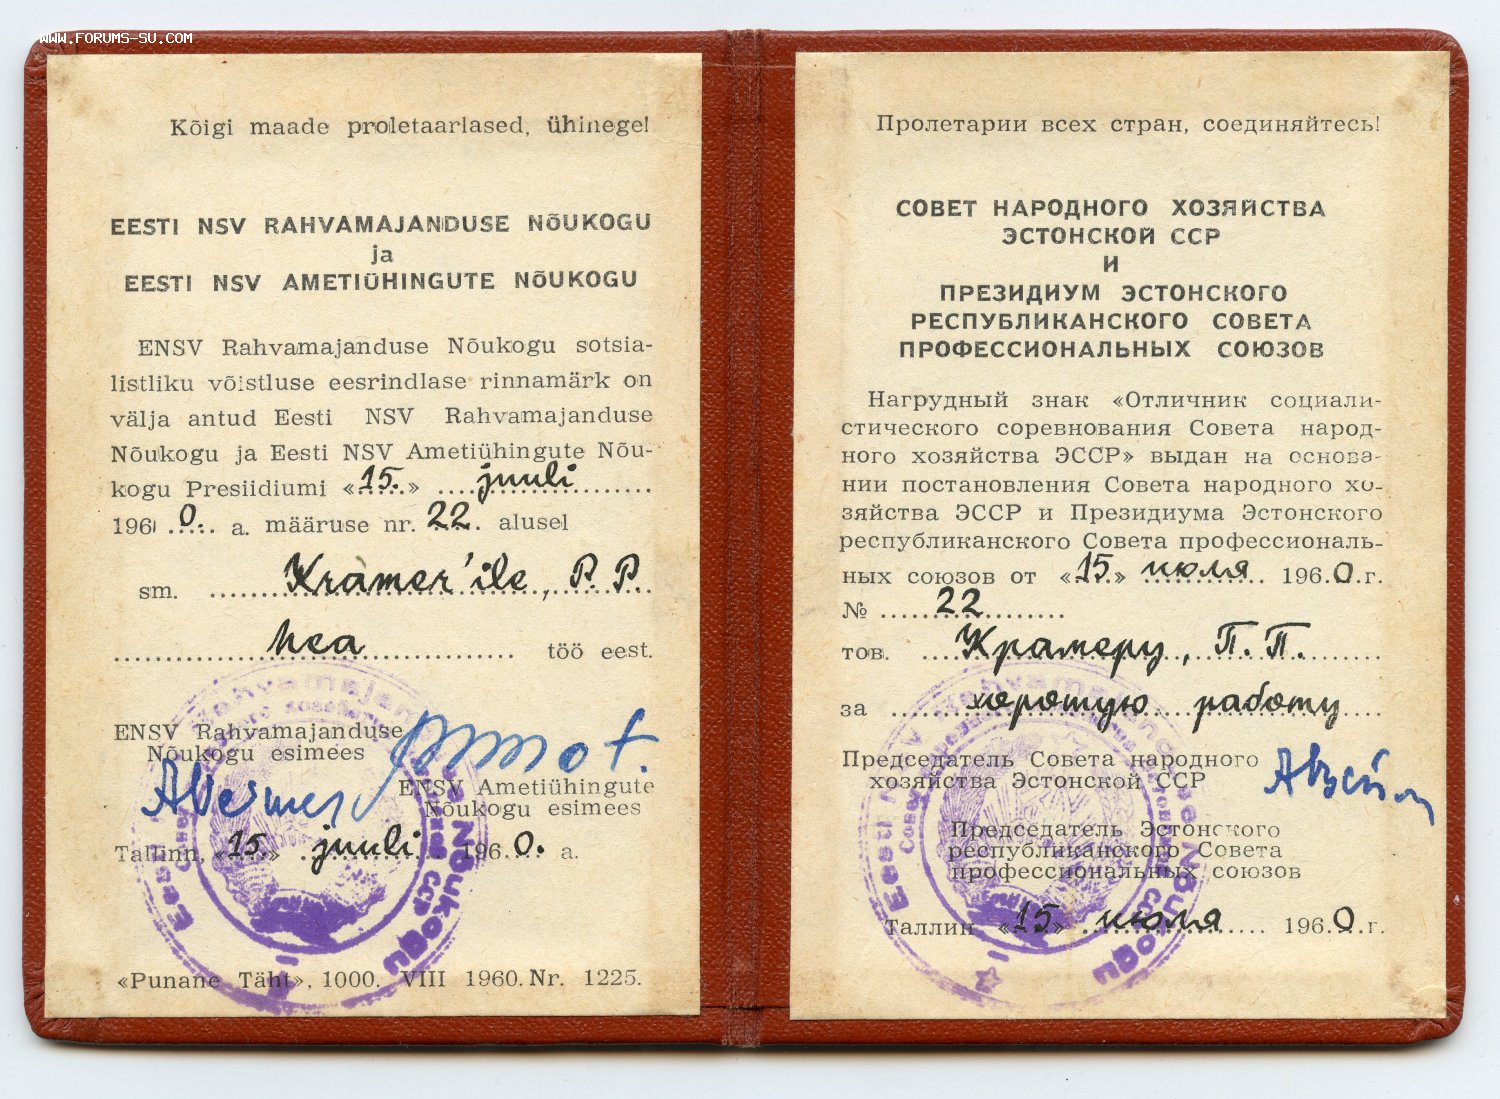 WWW.FORUMS-SU.COM
Kõigi maade proletaarlased, ühinege!
EESTI NSV RAHVAMAJANDUSE NÕUKOGU
ja
EESTI NSV AMETIÜHINGUTE NÕUKOGU
ENSV Rahvamajanduse Nõukogu sotsia-
listliku võistluse eesrindlase rinnamärk on
välja antud Eesti NSV Rahvamajanduse
Nõukogu ja Eesti NSV Ametiühingute Nõu-
kogu Presiidiumi «15.» juuli
1960. a. määruse nr. 22. alusel
sm. Kramer'ile, P. P.
hea töö eest.
ENSV Rahvamajanduse
Nõukogu esimees
ENSV Ametiühingute
Nõukogu esimees
Tallinn, «15.» juuli 1960. a.
«Punane Täht», 1000. VIII 1960. Nr. 1225.
Пролетарии всех стран, соединяйтесь!
СОВЕТ НАРОДНОГО ХОЗЯЙСТВА
ЭСТОНСКОЙ ССР
И
ПРЕЗИДИУМ ЭСТОНСКОГО
РЕСПУБЛИКАНСКОГО СОВЕТА
ПРОФЕССИОНАЛЬНЫХ СОЮЗОВ
Нагрудный знак «Отличник социали-
стического соревнования Совета народ-
ного хозяйства ЭССР» выдан на основа-
нии постановления Совета народного хо-
зяйства ЭССР и Президиума Эстонского
республиканского Совета профессиональ-
ных союзов от «15» июля 1960.г.
№ 22
тов. Крамеру, П. П.
за хорошую работу
Председатель Совета народного
хозяйства Эстонской ССР
Председатель Эстонского
республиканского Совета
профессиональных союзов
Таллин «15» июля 1960.г.